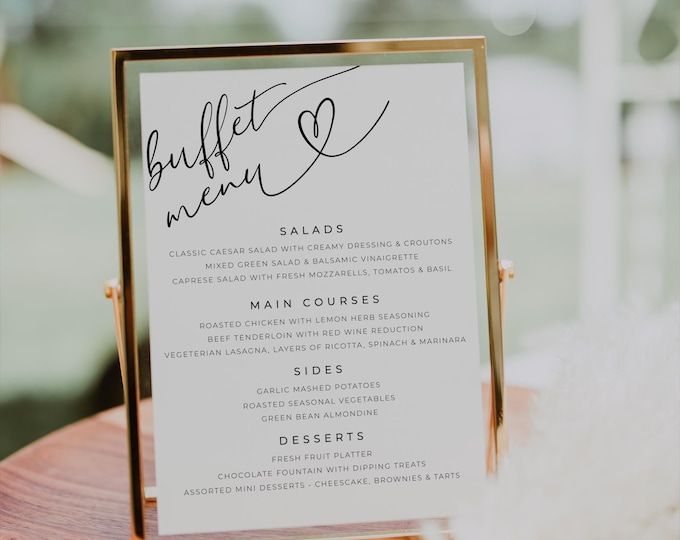 buffet
menu
SALADS
CLASSIC CAESAR SALAD WITH CREAMY DRESSING & CROUTONS
MIXED GREEN SALAD & BALSAMIC VINAIGRETTE
CAPRESE SALAD WITH FRESH MOZZARELLS, TOMATOS & BASIL
MAIN COURSES
ROASTED CHICKEN WITH LEMON HERB SEASONING
BEEF TENDERLOIN WITH RED WINE REDUCTION
VEGETERIAN LASAGNA, LAYERS OF RICOTTA, SPINACH & MARINARA
SIDES
GARLIC MASHED POTATOES
ROASTED SEASONAL VEGETABLES
GREEN BEAN ALMONDINE
DESSERTS
FRESH FRUIT PLATTER
CHOCOLATE FOUNTAIN WITH DIPPING TREATS
ASSORTED MINI DESSERTS - CHEESCAKE, BROWNIES & TARTS